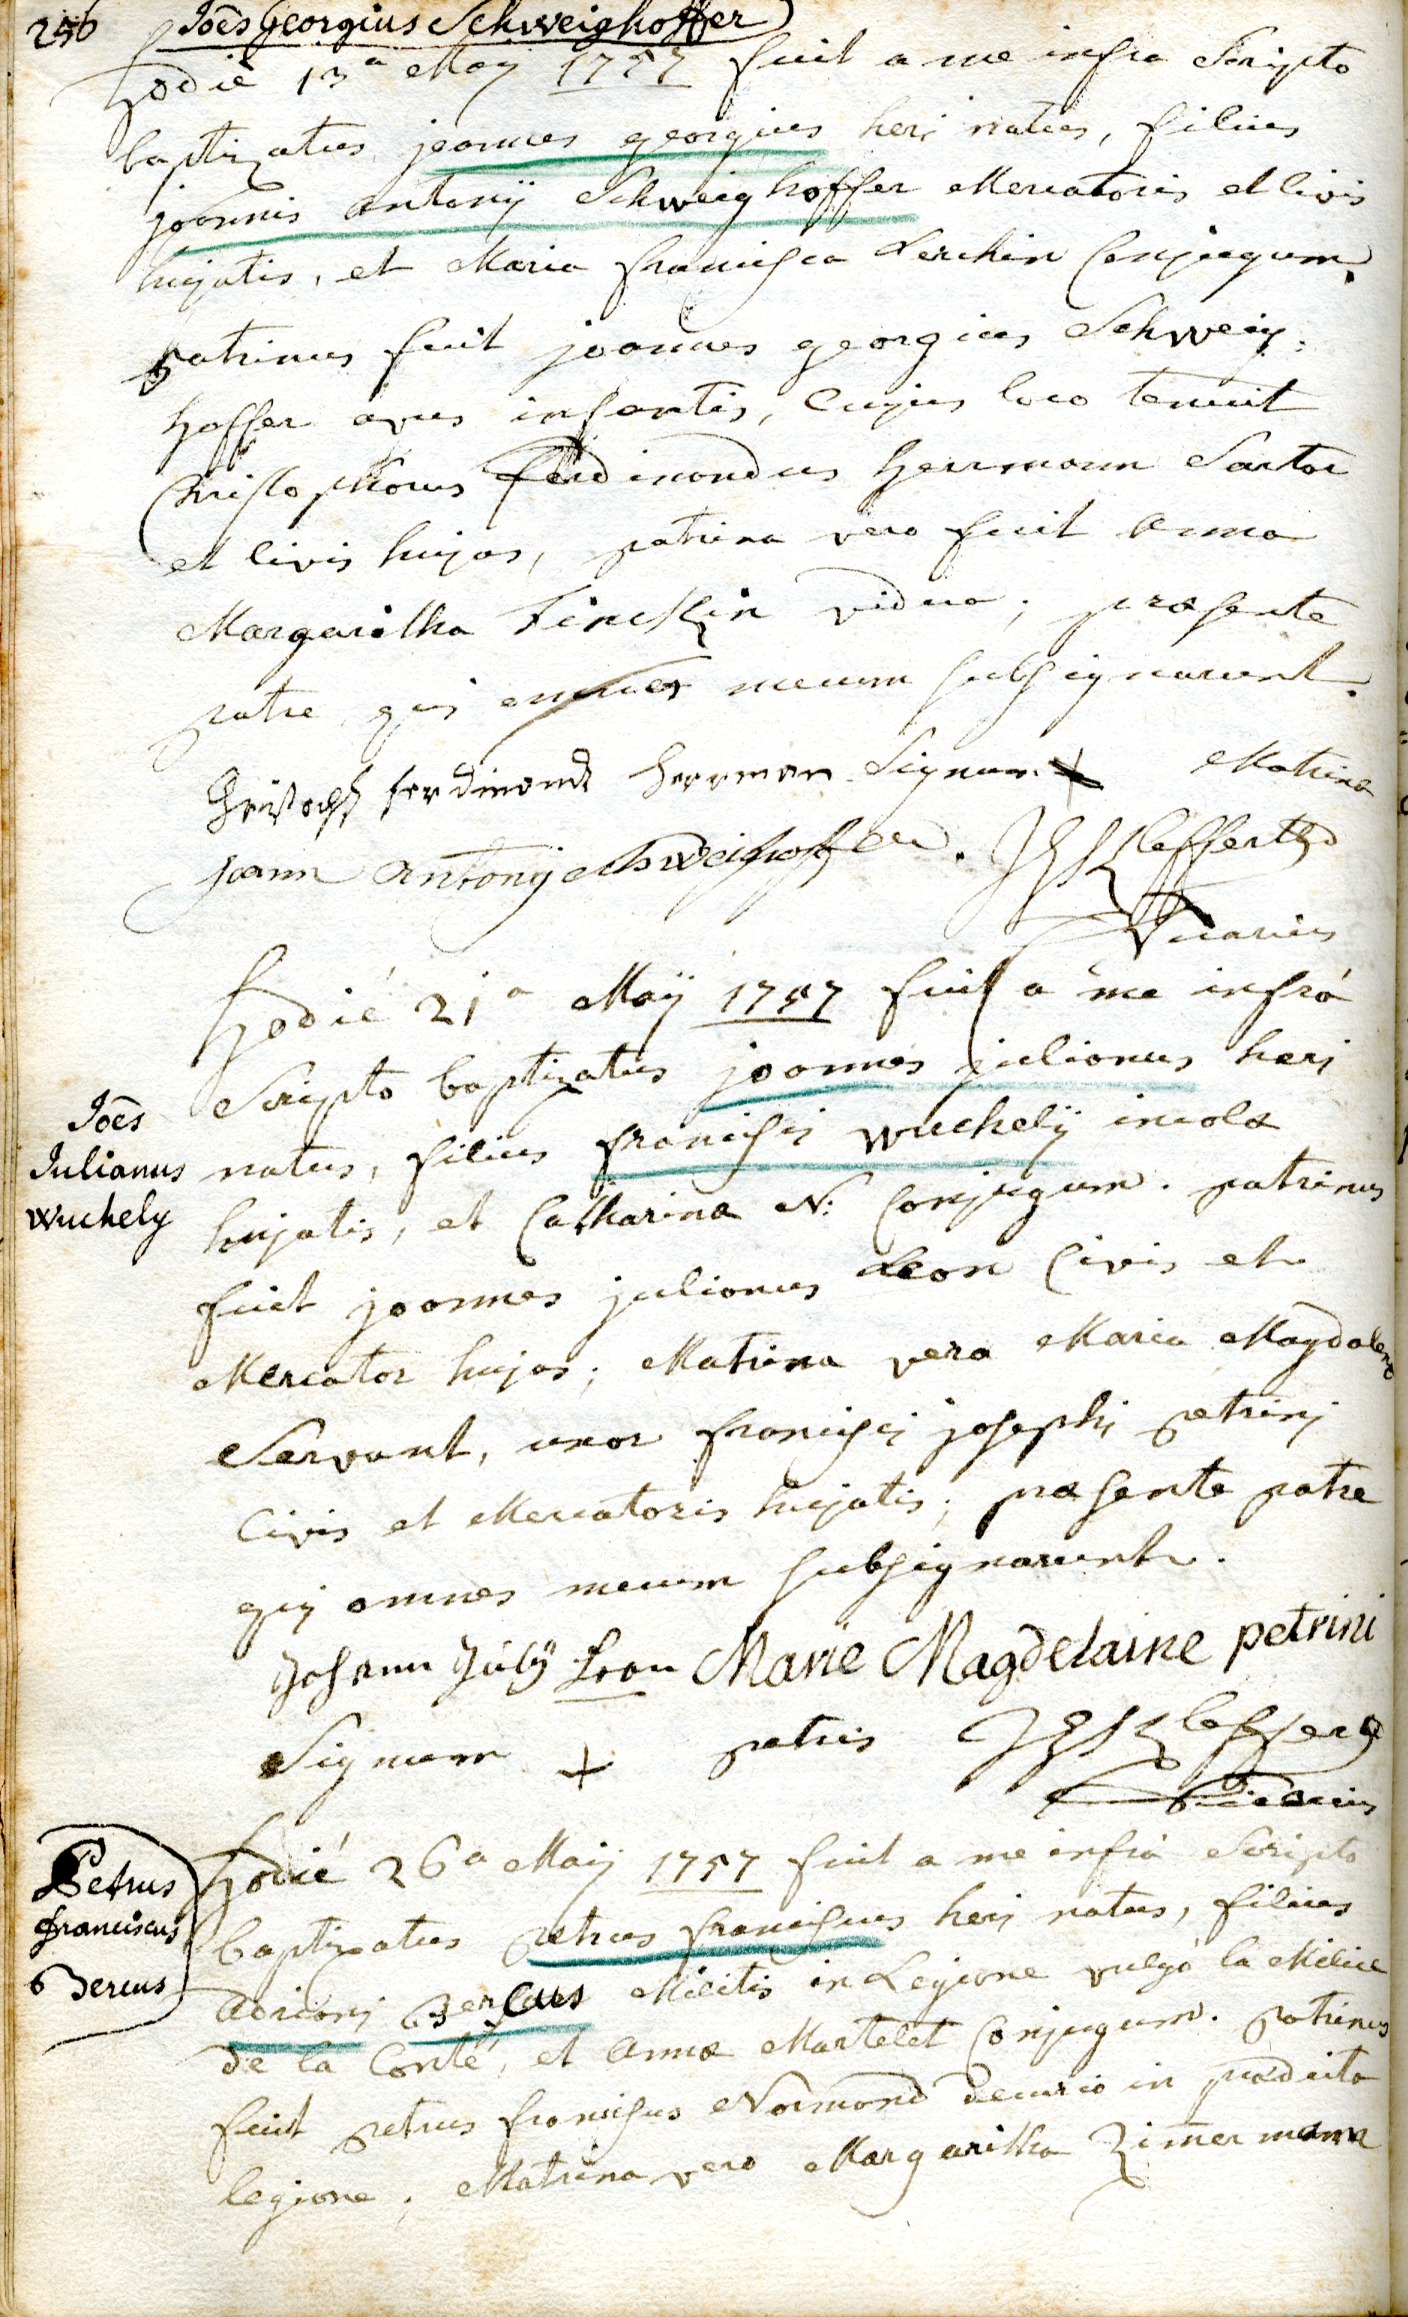 256 Joes Georgius Schweighoffer
hodie 13a May 1757 fuit a me infra Scripto
baptizatus joannes georgius heri natus, filius
joannis antonij Schweighoffer Mercatoris et Civis
hujatis, et Maria francisca Lerchin Conjugum.
patrinus fuit joannes georgius Schweig:
hoffer avus infantis, Cujus loco tenuit
Christophorus ferdinandus herrmann Sartor
et Civis hujas, patrina vero fuit anna
Margaritha Finckin vidua; præsente
patre qui omnes mecum subsignarunt.
Christoph ferdinandt herrman Signum + Matrina
joann antonij schweighoffer. Kleffert
Vicarius
hodié 21a Maÿ 1757 fuit a me infrá
Scripto baptizatus joannes julianus heri
Joes
Julianus
Wuchely
natus, filius francisci Wuchelÿ incolæ
hujatis, et Catharinæ N: Conjugum. patrinus
fuit joannes julianus Leon Civis et
Mercator hujas; Matrina vero Maria Magdalena
Servant, uxor francisci josephi petrinj
Civis et Mercatoris hujatis; præsente patre
qui omnes mecum subsignarunt.
Johann Julÿ Leon Marie Magdelaine petrini
Signum + patris Kleffert
Vicarius
Petrus
franciscus
Bercus
hodié 26a Maij 1757 fuit a me infrà Scripto
baptizatus petrus franciscus heri natus, filius
adriani Bercus Militis in Legione vulgò la Milice
de la Conté, et annæ Martelet Conjugum. patrinus
fuit petrus franciscus Normand decurio in prædicta
legione; Matrina vero Margaritha Zimermann